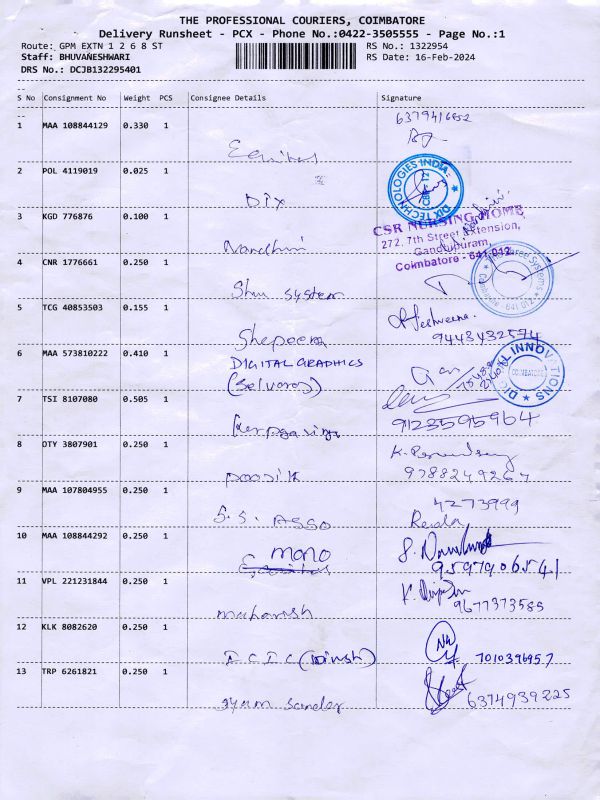 THE PROFESSIONAL COURIERS, COIMBATORE
Delivery Runsheet - PCX - Phone No.:0422-3505555 - Page No.:1
Route: GPM EXTN 1 2 6 8 ST RS No.: 1322954
Staff: BHUVANESHWARI RS Date: 16-Feb-2024
DRS No.: DCJB132295401
S No Consignment No Weight PCS Consignee Details Signature
1 MAA 108844129 0.330 1
Equitas
2 POL 4119019 0.025 1
DIX
DIX TECHNOLOGIES INDIA
CBE-12
3 KGD 776876 0.100 1
Nandhini
CSR NURSING HOME
272, 7th Street Extension,
Gandhipuram,
Coimbatore - 641 012
4 CNR 1776661 0.250 1
Shu system
5 TCG 40853503 0.155 1
Shepeera
9443432574
6 MAA 573810222 0.410 1
DIGITAL GRAPHICS
(Selvaraj)
COIMBATORE
INNOVATIONS
7 TSI 8107080 0.505 1
9123595964
8 DTY 3807901 0.250 1
9788249267
9 MAA 107804955 0.250 1
S.S. ASSO
4273999
10 MAA 108844292 0.250 1
mono
9597906541
11 VPL 221231844 0.250 1
9677373585
12 KLK 8082620 0.250 1
I C I C (Dinsh)
7010396957
13 TRP 6261821 0.250 1
syam sander
6374939225